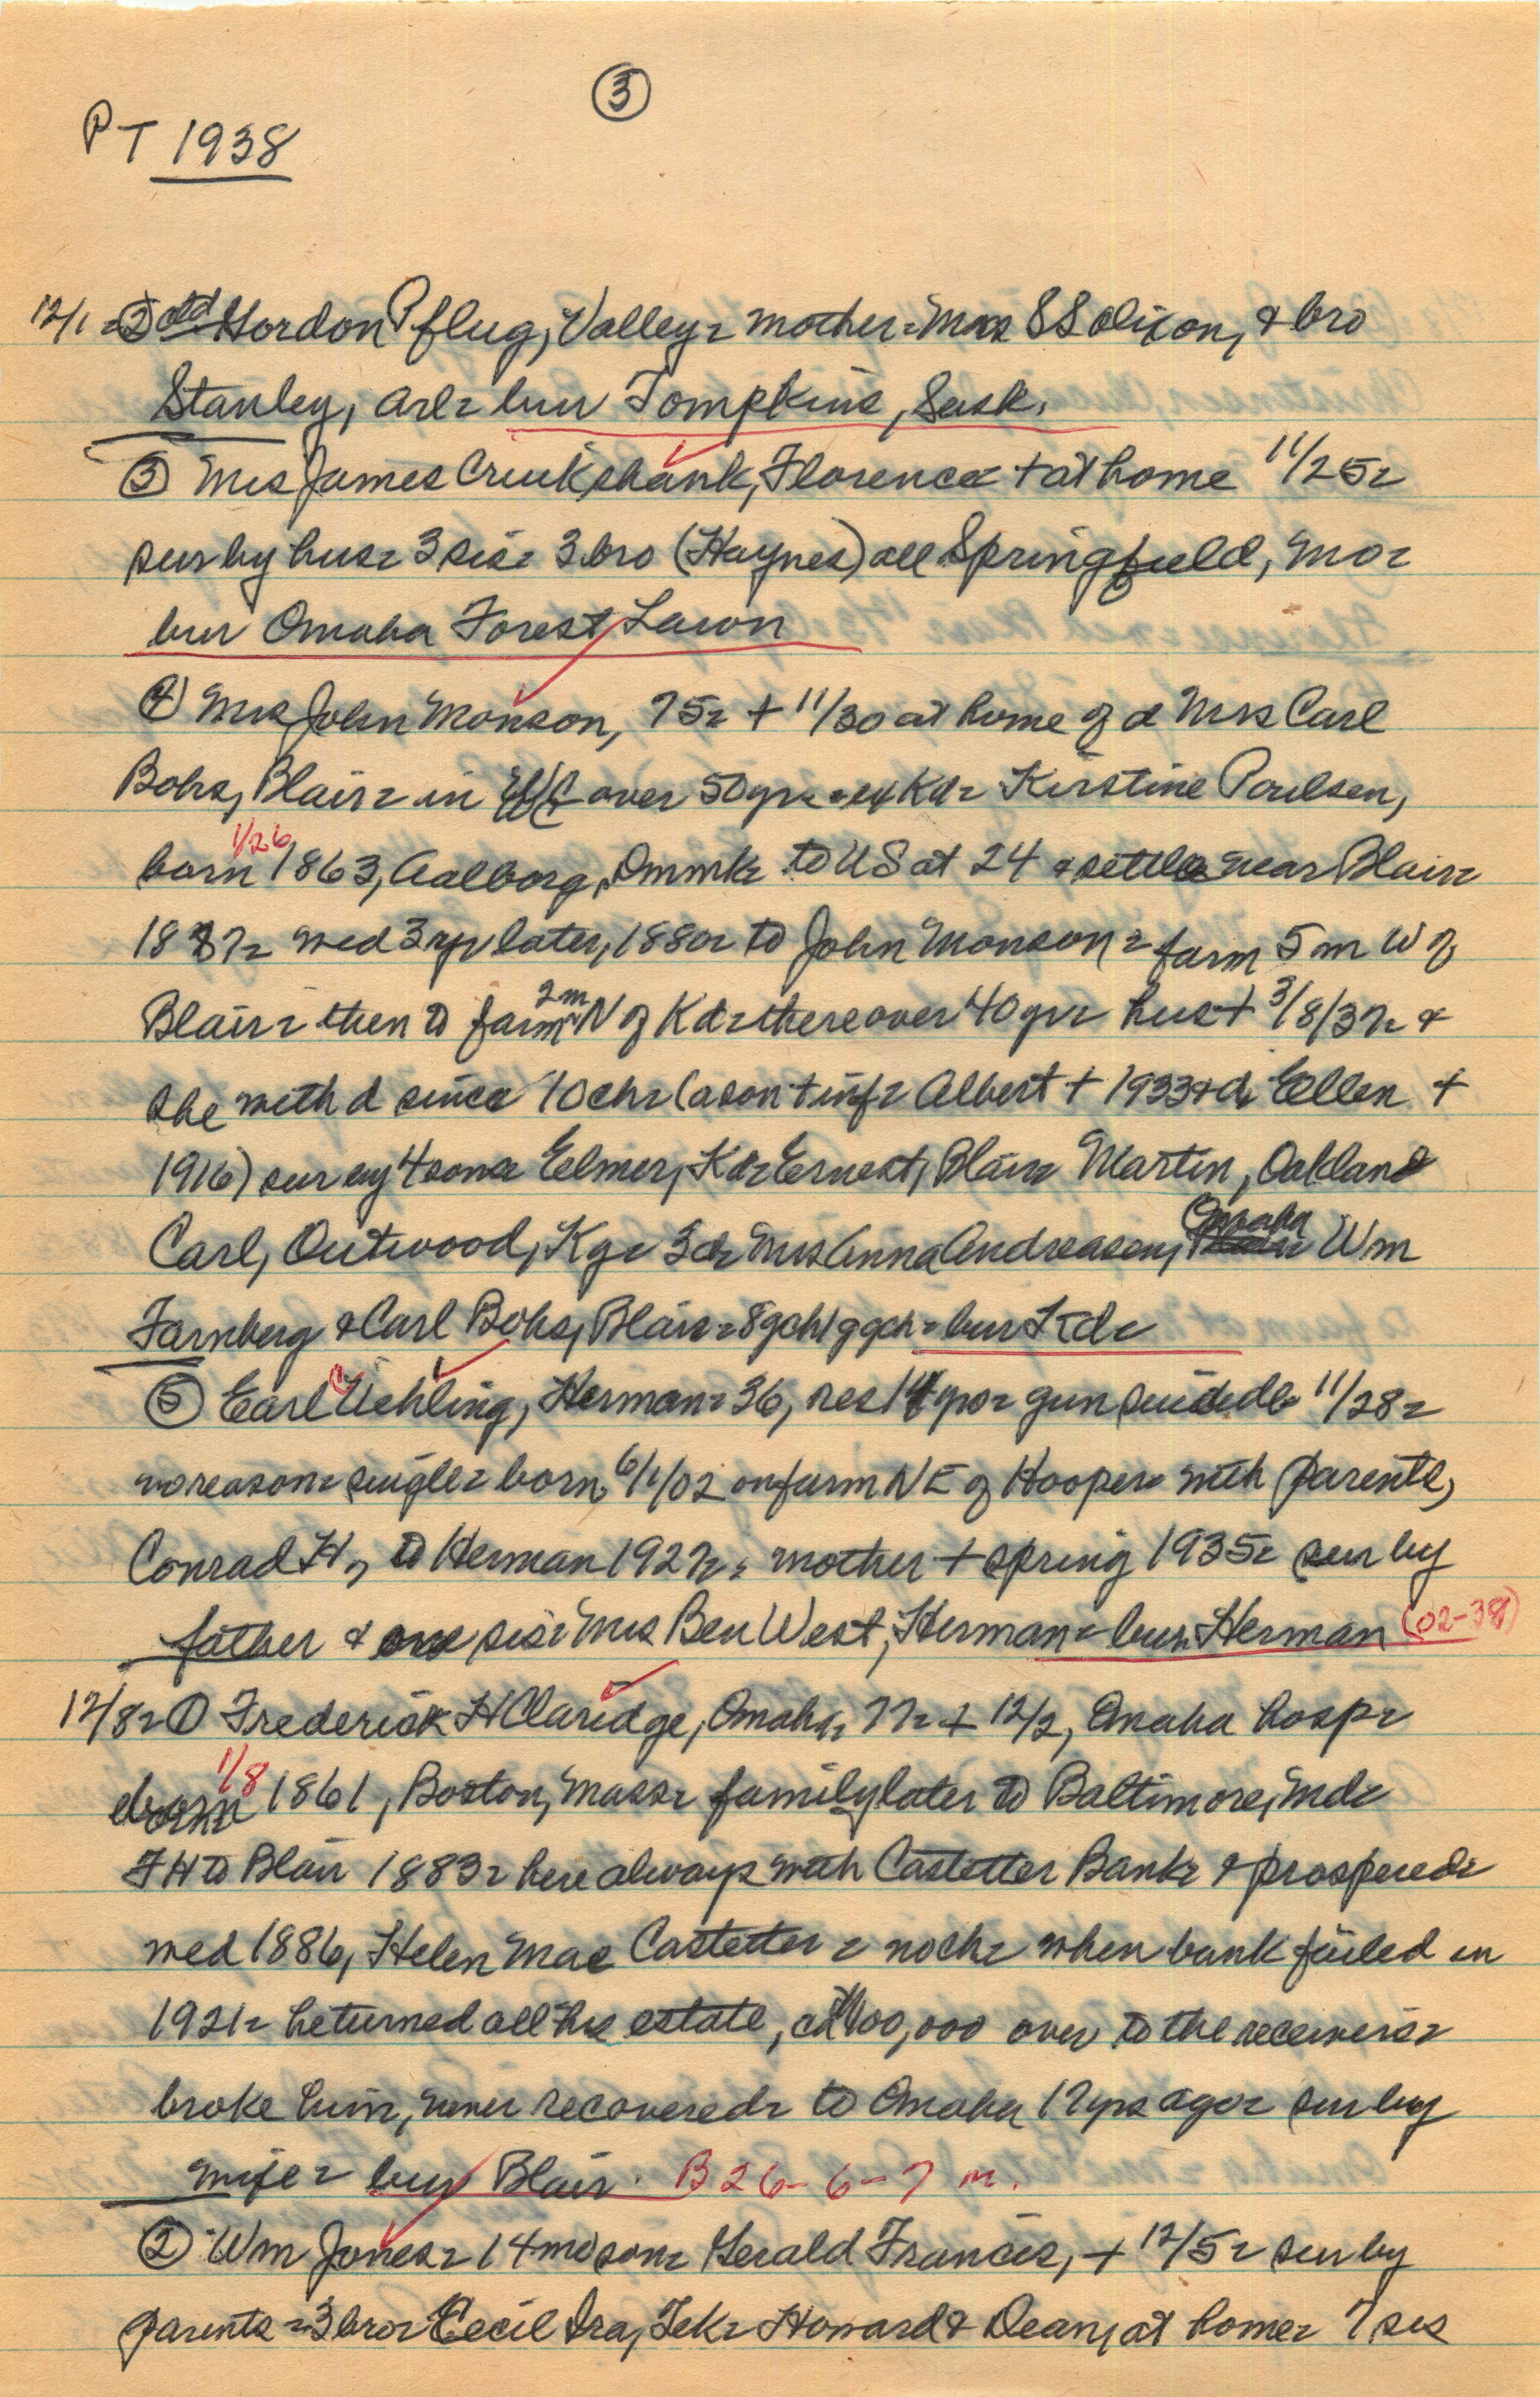 ③
PT 1938
12/1 = ② Gordon Pflug, Valley = mother = Mrs S Solixon, & bro
Stanley, Arl = bur Tompkins, Sask.
③ Mrs James Cruikshank, Florence + at home 11/25 =
sur by hus = 3 sis = 3 bro (Haynes) all Springfield, Mo =
bur Omaha Forest Lawn
④ Mrs John Monson, 75 = + 11/30 at home of d Mrs Carl
Bohs, Blair = in WC over 50 yr = ex Kd = Kirstine Poulsen,
1/26
born 1863, Aalborg, Dnmk = to US at 24 & settle near Blair =
1887 = wed 3 yr later, 1880 = to John Monson = farm 5 m W of
Blair = then to farm 2m N of Kd = there over 40 yr = hus + 3/8/37 = &
she with d since 10 ch = (a son + inf = Albert + 1933 & d Ellen +
1916) sur by 4 sons Elmer, Kd = Ernest, Blair = Martin, Oakland
Carl, Outwood, Ky = 3 d = Mrs Anna Andreasen, Omaha Wm
Farnberg & Carl Bohs, Blair = 8 gch 1 ggch = bur Kd =
⑤ Earl Uehling, Herman = 36, res 14 yr = gun suicide 11/28 =
no reason = single = born 6/1/02 on farm NE of Hooper = with parents,
Conrad H, to Herman 1927 = mother + spring 1935 = sur by
father & one sis = Mrs Ben West, Herman = bur Herman (02-38)
12/8 = ① Frederick H Claridge, Omaha, 77 = + 12/2, Omaha hosp =
1/8
born 1861, Boston, Mass = family later to Baltimore, Md =
FH to Blair 1883 = here always with Castetter Bank = & prospered =
wed 1886, Helen Mae Castetter = no ch = when bank failed in
1921 = he turned all his estate, 100,000 over to the receivers =
broke him, never recovered = to Omaha 12 yrs ago = sur by
wife = bur Blair. B 26-6-7 m.
② Wm Jones = 14 mo son = Gerald Francis, + 12/5 = sur by
parents = 3 bro = Cecil Ira, Tek = Howard & Dean, at home = 7 sis